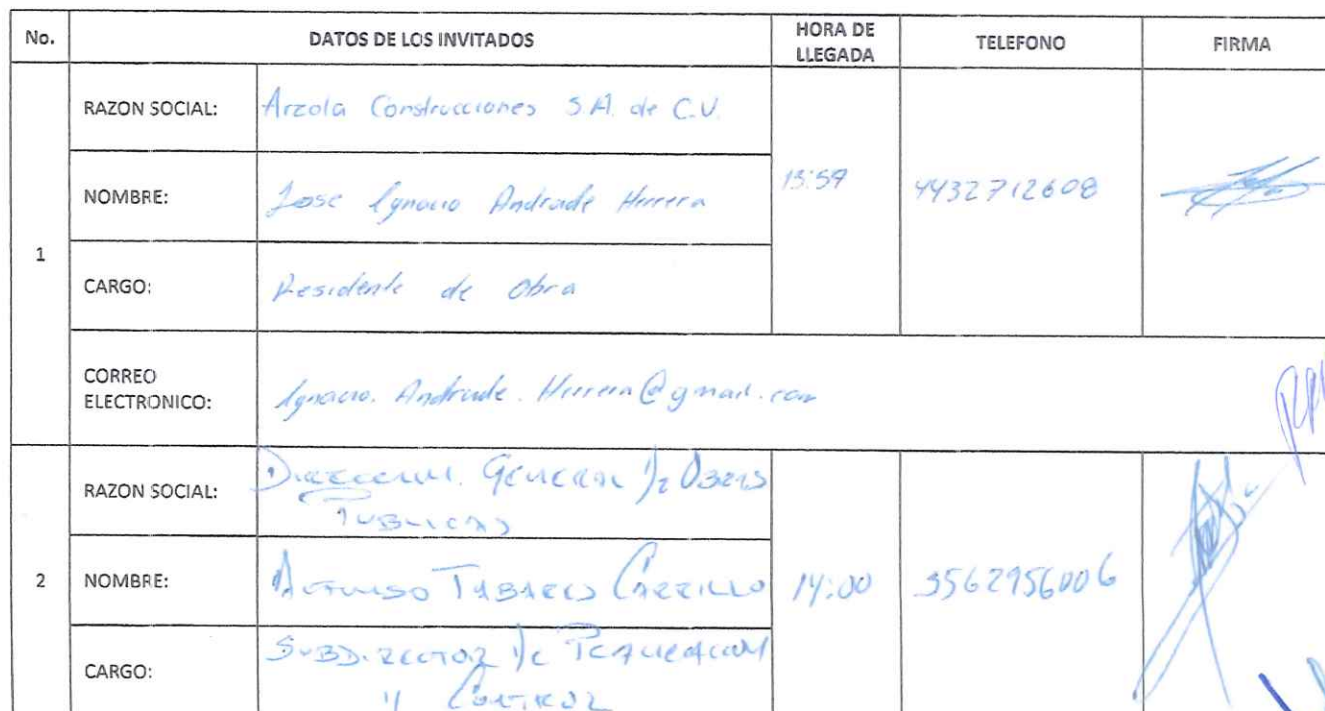 No. DATOS DE LOS INVITADOS HORA DE LLEGADA TELEFONO FIRMA
1
RAZON SOCIAL: Arzola Construcciones S.A. de C.V.
NOMBRE: Jose Ignacio Andrade Herrera 13:59 4432712608
CARGO: Residente de Obra
CORREO ELECTRONICO: Ignacio.Andrade.Herrera@gmail.com
2
RAZON SOCIAL: Direccion General de Obras
Publicas
NOMBRE: Tabares Carrillo 14:00 3562956006
CARGO: Subdirector de Planeacion
y Control